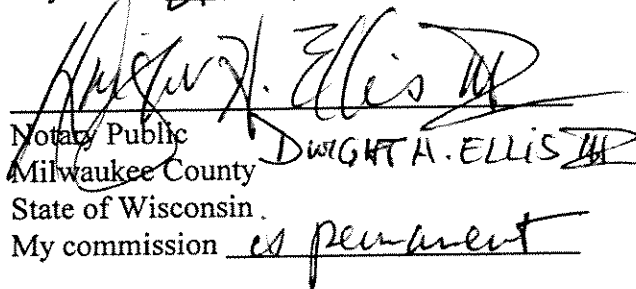 Dwight H. Ellis III
Notary Public
DWIGHT H. ELLIS III
Milwaukee County
State of Wisconsin
My commission is permanent